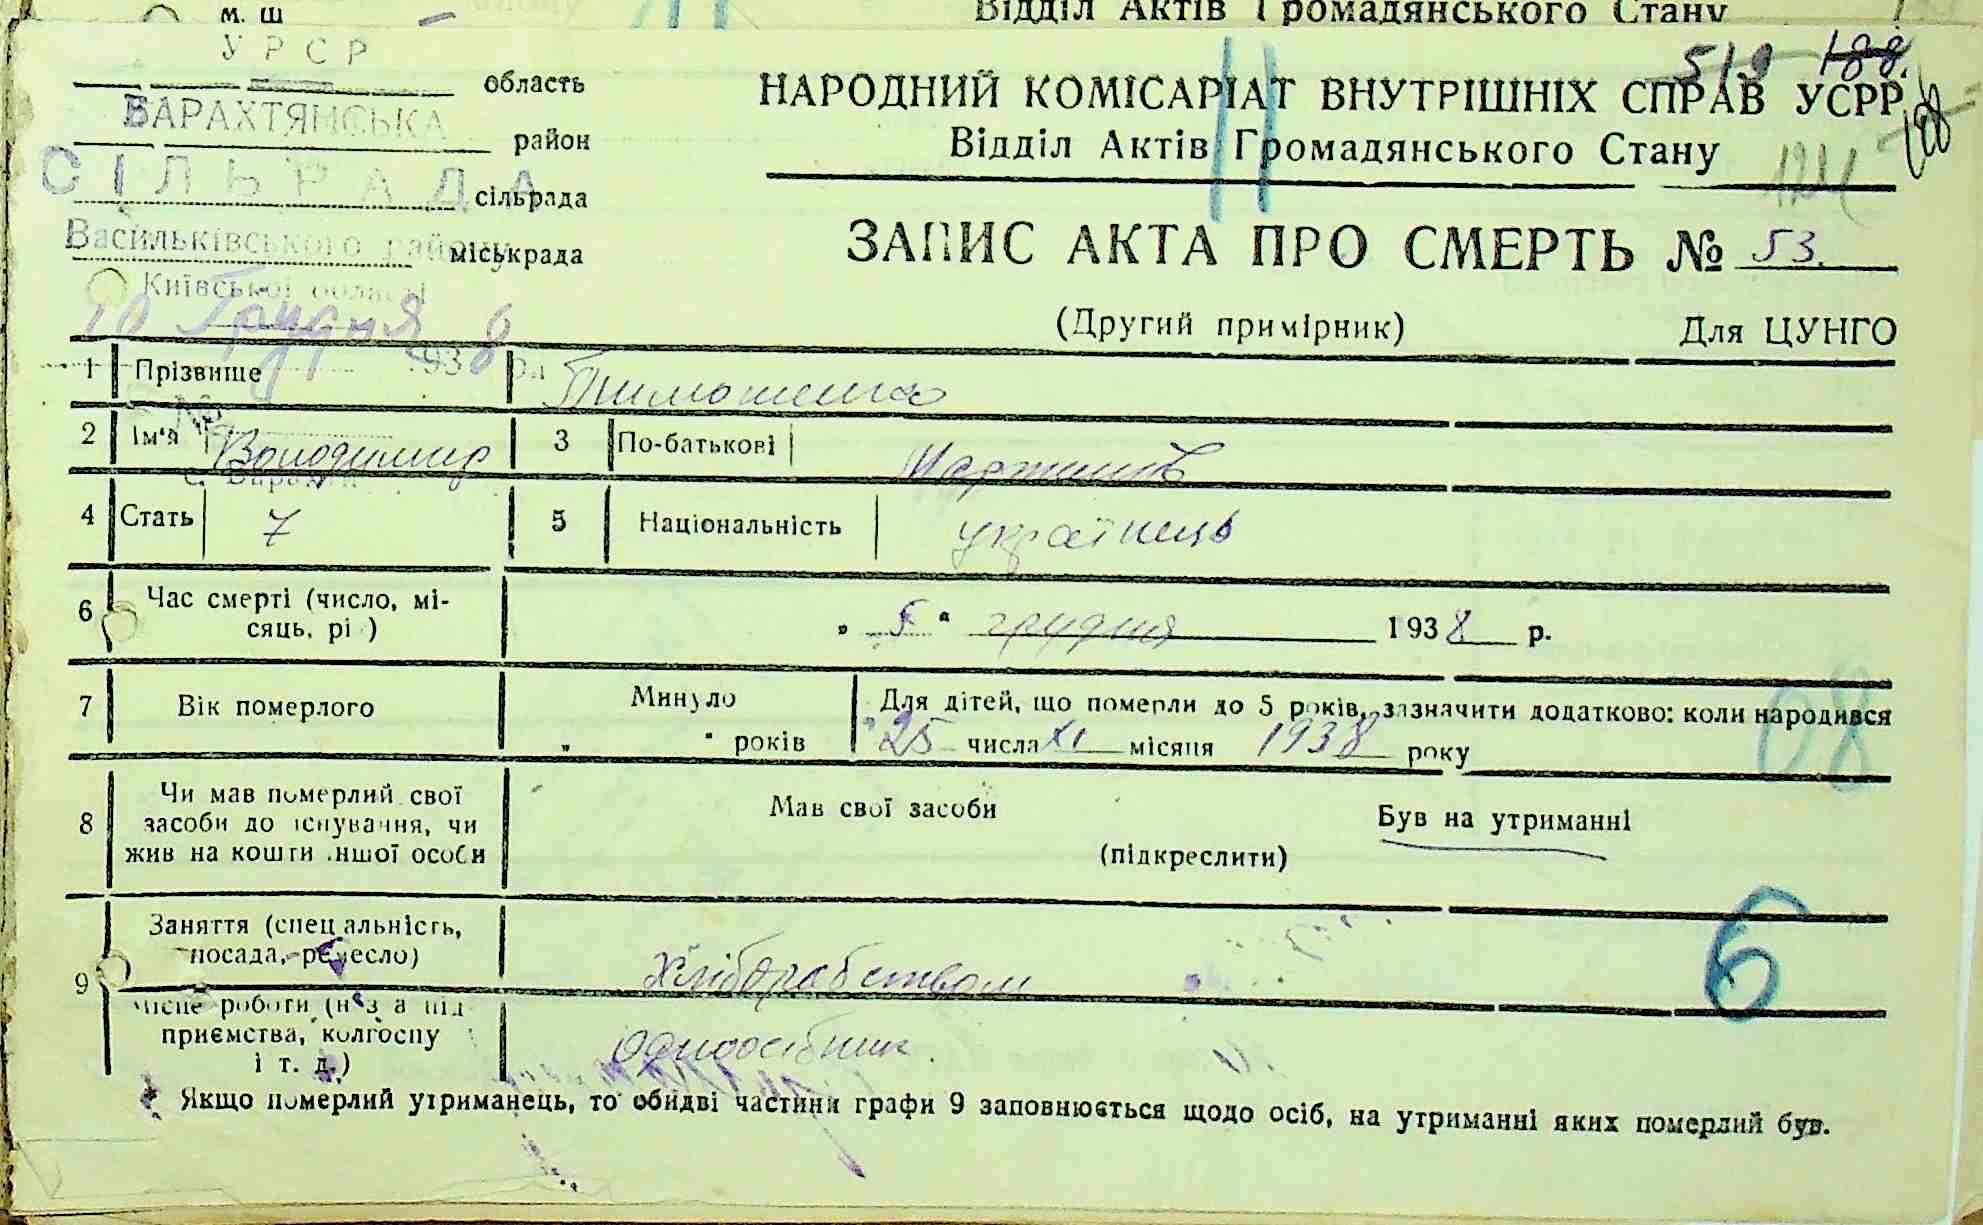 м. ш
Відділ Актів Громадянського Стану
У Р С Р
область
БАРАХТЯНСЬКА
район
СІЛЬРАДА
сільрада
Васильківського району
міськрада
Київської області
10 Грудня 1938 р.
518 188.
188
НАРОДНИЙ КОМІСАРІАТ ВНУТРІШНІХ СПРАВ УСРР
Відділ Актів Громадянського Стану
124
ЗАПИС АКТА ПРО СМЕРТЬ № 53.
(Другий примірник) Для ЦУНГО
1 Прізвище Тимошенко
2 Ім'я Володимир 3 По-батькові Мартинів
4 Стать 7 5 Національність українець
6 Час смерті (число, мі-
сяць, рі ) „ 5 " грудня 1938 р.
7 Вік померлого Минуло Для дітей, що померли до 5 років, зазначити додатково: коли народився
„ " років 25 числа XI місяця 1938 року
08
8 Чи мав померлий свої
засоби до існування, чи
жив на кошти іншої особи
Мав свої засоби Був на утриманні
(підкреслити)
9 Заняття (спец альність,
посада, ремесло) Хліборобством
6
місце роботи (наз а під
приємства, колгоспу
і т. д.) Одноосібник.
* Якщо померлий утриманець, то обидві частини графи 9 заповнюється щодо осіб, на утриманні яких померлий був.